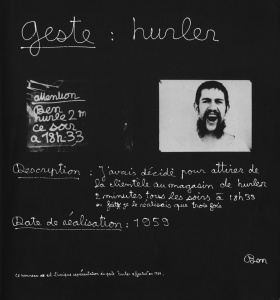 geste : hurler
attention
Ben
hurle 2 m
ce soir
à 18h33
Description : J'avais décidé pour attirer de
la clientèle au magasin de hurler
2 minutes tous les soirs à 18h33
en fait je le réalisais que trois fois
Date de réalisation : 1959
Ben